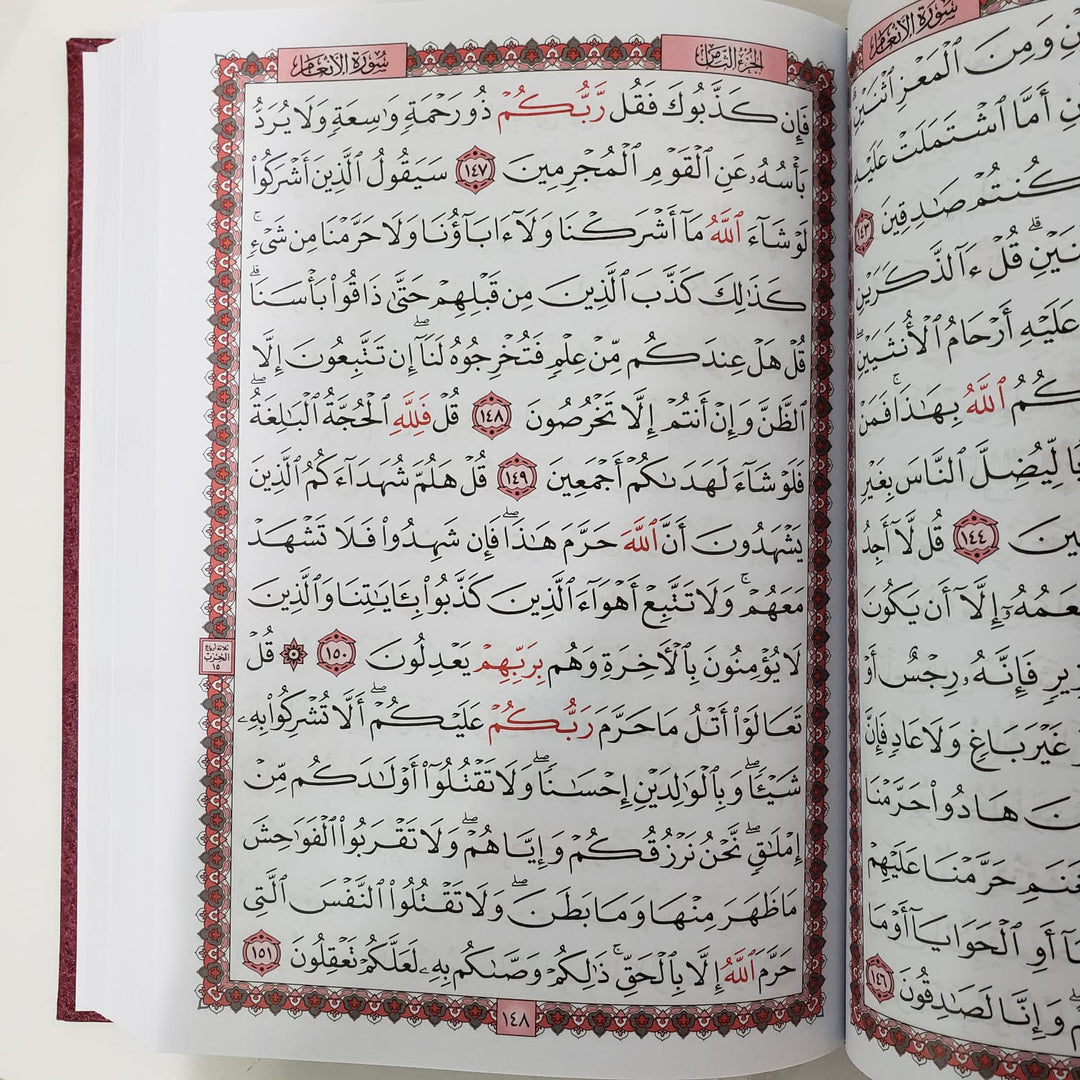 سُورَةُ الأنعام
الجزء الثامن
فَإِن كَذَّبُوكَ فَقُل رَّبُّكُمْ ذُو رَحْمَةٍ وَاسِعَةٍ وَلَا يُرَدُّ
بَأْسُهُۥ عَنِ ٱلْقَوْمِ ٱلْمُجْرِمِينَ ١٤٧ سَيَقُولُ ٱلَّذِينَ أَشْرَكُوا۟
لَوْ شَآءَ ٱللَّهُ مَآ أَشْرَكْنَا وَلَآ ءَابَآؤُنَا وَلَا حَرَّمْنَا مِن شَىْءٍ ۚ
كَذَٰلِكَ كَذَّبَ ٱلَّذِينَ مِن قَبْلِهِمْ حَتَّىٰ ذَاقُوا۟ بَأْسَنَا ۗ
قُلْ هَلْ عِندَكُم مِّنْ عِلْمٍ فَتُخْرِجُوهُ لَنَآ ۖ إِن تَتَّبِعُونَ إِلَّا
ٱلظَّنَّ وَإِنْ أَنتُمْ إِلَّا تَخْرُصُونَ ١٤٨ قُلْ فَلِلَّهِ ٱلْحُجَّةُ ٱلْبَٰلِغَةُ ۖ
فَلَوْ شَآءَ لَهَدَىٰكُمْ أَجْمَعِينَ ١٤٩ قُلْ هَلُمَّ شُهَدَآءَكُمُ ٱلَّذِينَ
يَشْهَدُونَ أَنَّ ٱللَّهَ حَرَّمَ هَٰذَا ۖ فَإِن شَهِدُوا۟ فَلَا تَشْهَدْ
مَعَهُمْ ۚ وَلَا تَتَّبِعْ أَهْوَآءَ ٱلَّذِينَ كَذَّبُوا۟ بِـَٔايَٰتِنَا وَٱلَّذِينَ
لَا يُؤْمِنُونَ بِٱلْـَٔاخِرَةِ وَهُم بِرَبِّهِمْ يَعْدِلُونَ ١٥٠ ۞ قُلْ
تَعَالَوْا۟ أَتْلُ مَا حَرَّمَ رَبُّكُمْ عَلَيْكُمْ ۖ أَلَّا تُشْرِكُوا۟ بِهِۦ
شَيْـًٔا ۖ وَبِٱلْوَٰلِدَيْنِ إِحْسَٰنًا ۖ وَلَا تَقْتُلُوٓا۟ أَوْلَٰدَكُم مِّنْ
إِمْلَٰقٍ ۖ نَّحْنُ نَرْزُقُكُمْ وَإِيَّاهُمْ ۖ وَلَا تَقْرَبُوا۟ ٱلْفَوَٰحِشَ
مَا ظَهَرَ مِنْهَا وَمَا بَطَنَ ۖ وَلَا تَقْتُلُوا۟ ٱلنَّفْسَ ٱلَّتِى
حَرَّمَ ٱللَّهُ إِلَّا بِٱلْحَقِّ ۚ ذَٰلِكُمْ وَصَّىٰكُم بِهِۦ لَعَلَّكُمْ تَعْقِلُونَ ١٥١
١٤٨
ثلاثة أرباع
الحزب
١٥
سُورَةُ الأنعام
وَمِنَ ٱلْمَعْزِ ٱثْنَيْنِ
أَمَّا ٱشْتَمَلَتْ عَلَيْهِ
كُنتُمْ صَٰدِقِينَ ١٤٣
قُلْ ءَآلذَّكَرَيْنِ
عَلَيْهِ أَرْحَامُ ٱلْأُنثَيَيْنِ ۖ
ٱللَّهُ بِهَٰذَا ۚ فَمَنْ
لِّيُضِلَّ ٱلنَّاسَ بِغَيْرِ
١٤٤ قُل لَّآ أَجِدُ
إِلَّآ أَن يَكُونَ
فَإِنَّهُۥ رِجْسٌ أَوْ
غَيْرَ بَاغٍ وَلَا عَادٍ فَإِنَّ
هَادُوا۟ حَرَّمْنَا
حَرَّمْنَا عَلَيْهِمْ
أَوِ ٱلْحَوَايَآ أَوْ مَا
وَإِنَّا لَصَٰدِقُونَ ١٤٦